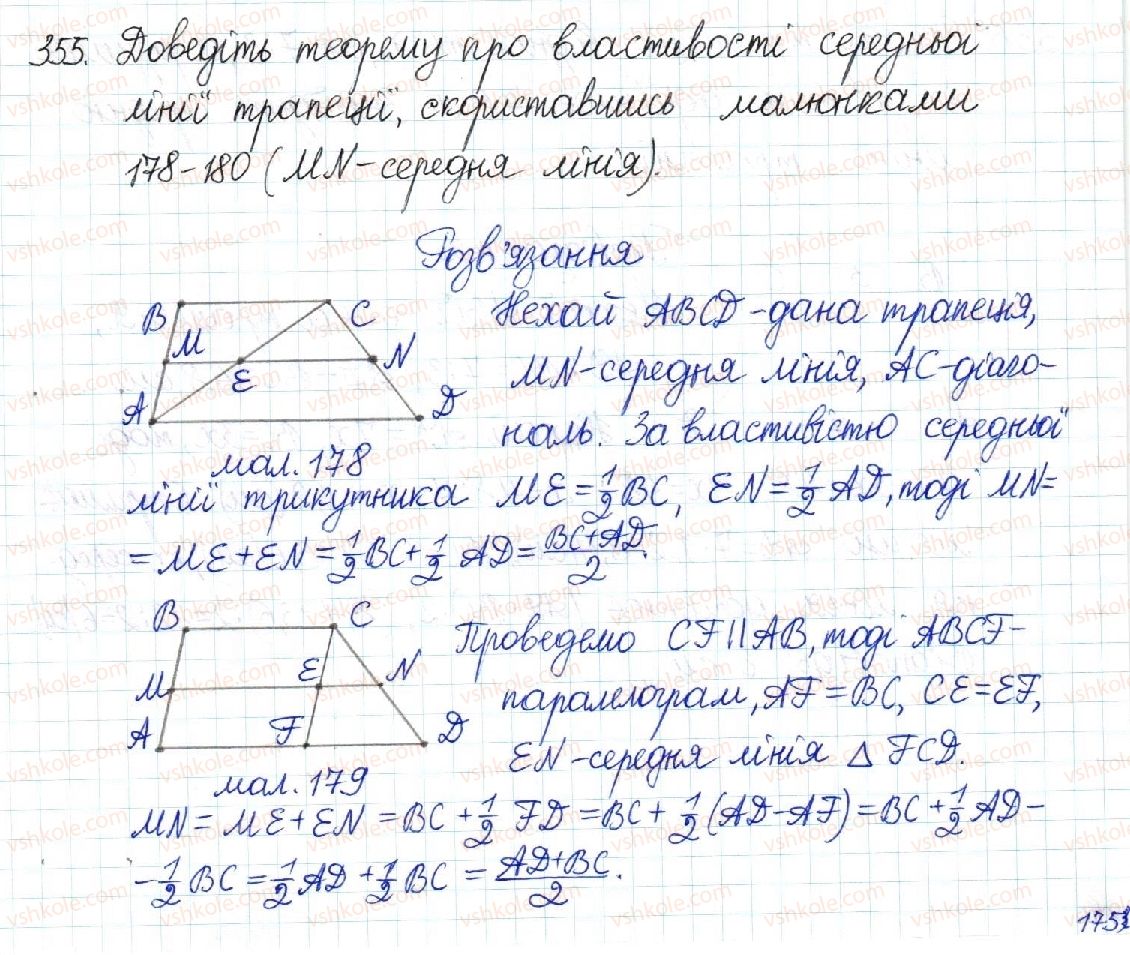 355. Доведіть теорему про властивості середньої
лінії трапеції, скориставшись малюнками
178-180 (MN-середня лінія).
Розв'язання
B C
M N
E
A D
мал. 178
Нехай ABCD-дана трапеція,
MN-середня лінія, AC-діаго-
наль. За властивістю середньої
лінії трикутника ME = 1/2 BC, EN = 1/2 AD, тоді MN=
= ME + EN = 1/2 BC + 1/2 AD = (BC+AD)/2.
B C
M E N
A F D
мал. 179
Проведемо CF || AB, тоді ABCF-
паралелограм, AF = BC, CE = EF,
EN-середня лінія △ FCD.
MN = ME + EN = BC + 1/2 FD = BC + 1/2 (AD - AF) = BC + 1/2 AD -
- 1/2 BC = 1/2 AD + 1/2 BC = (AD+BC)/2.
vshkole.com